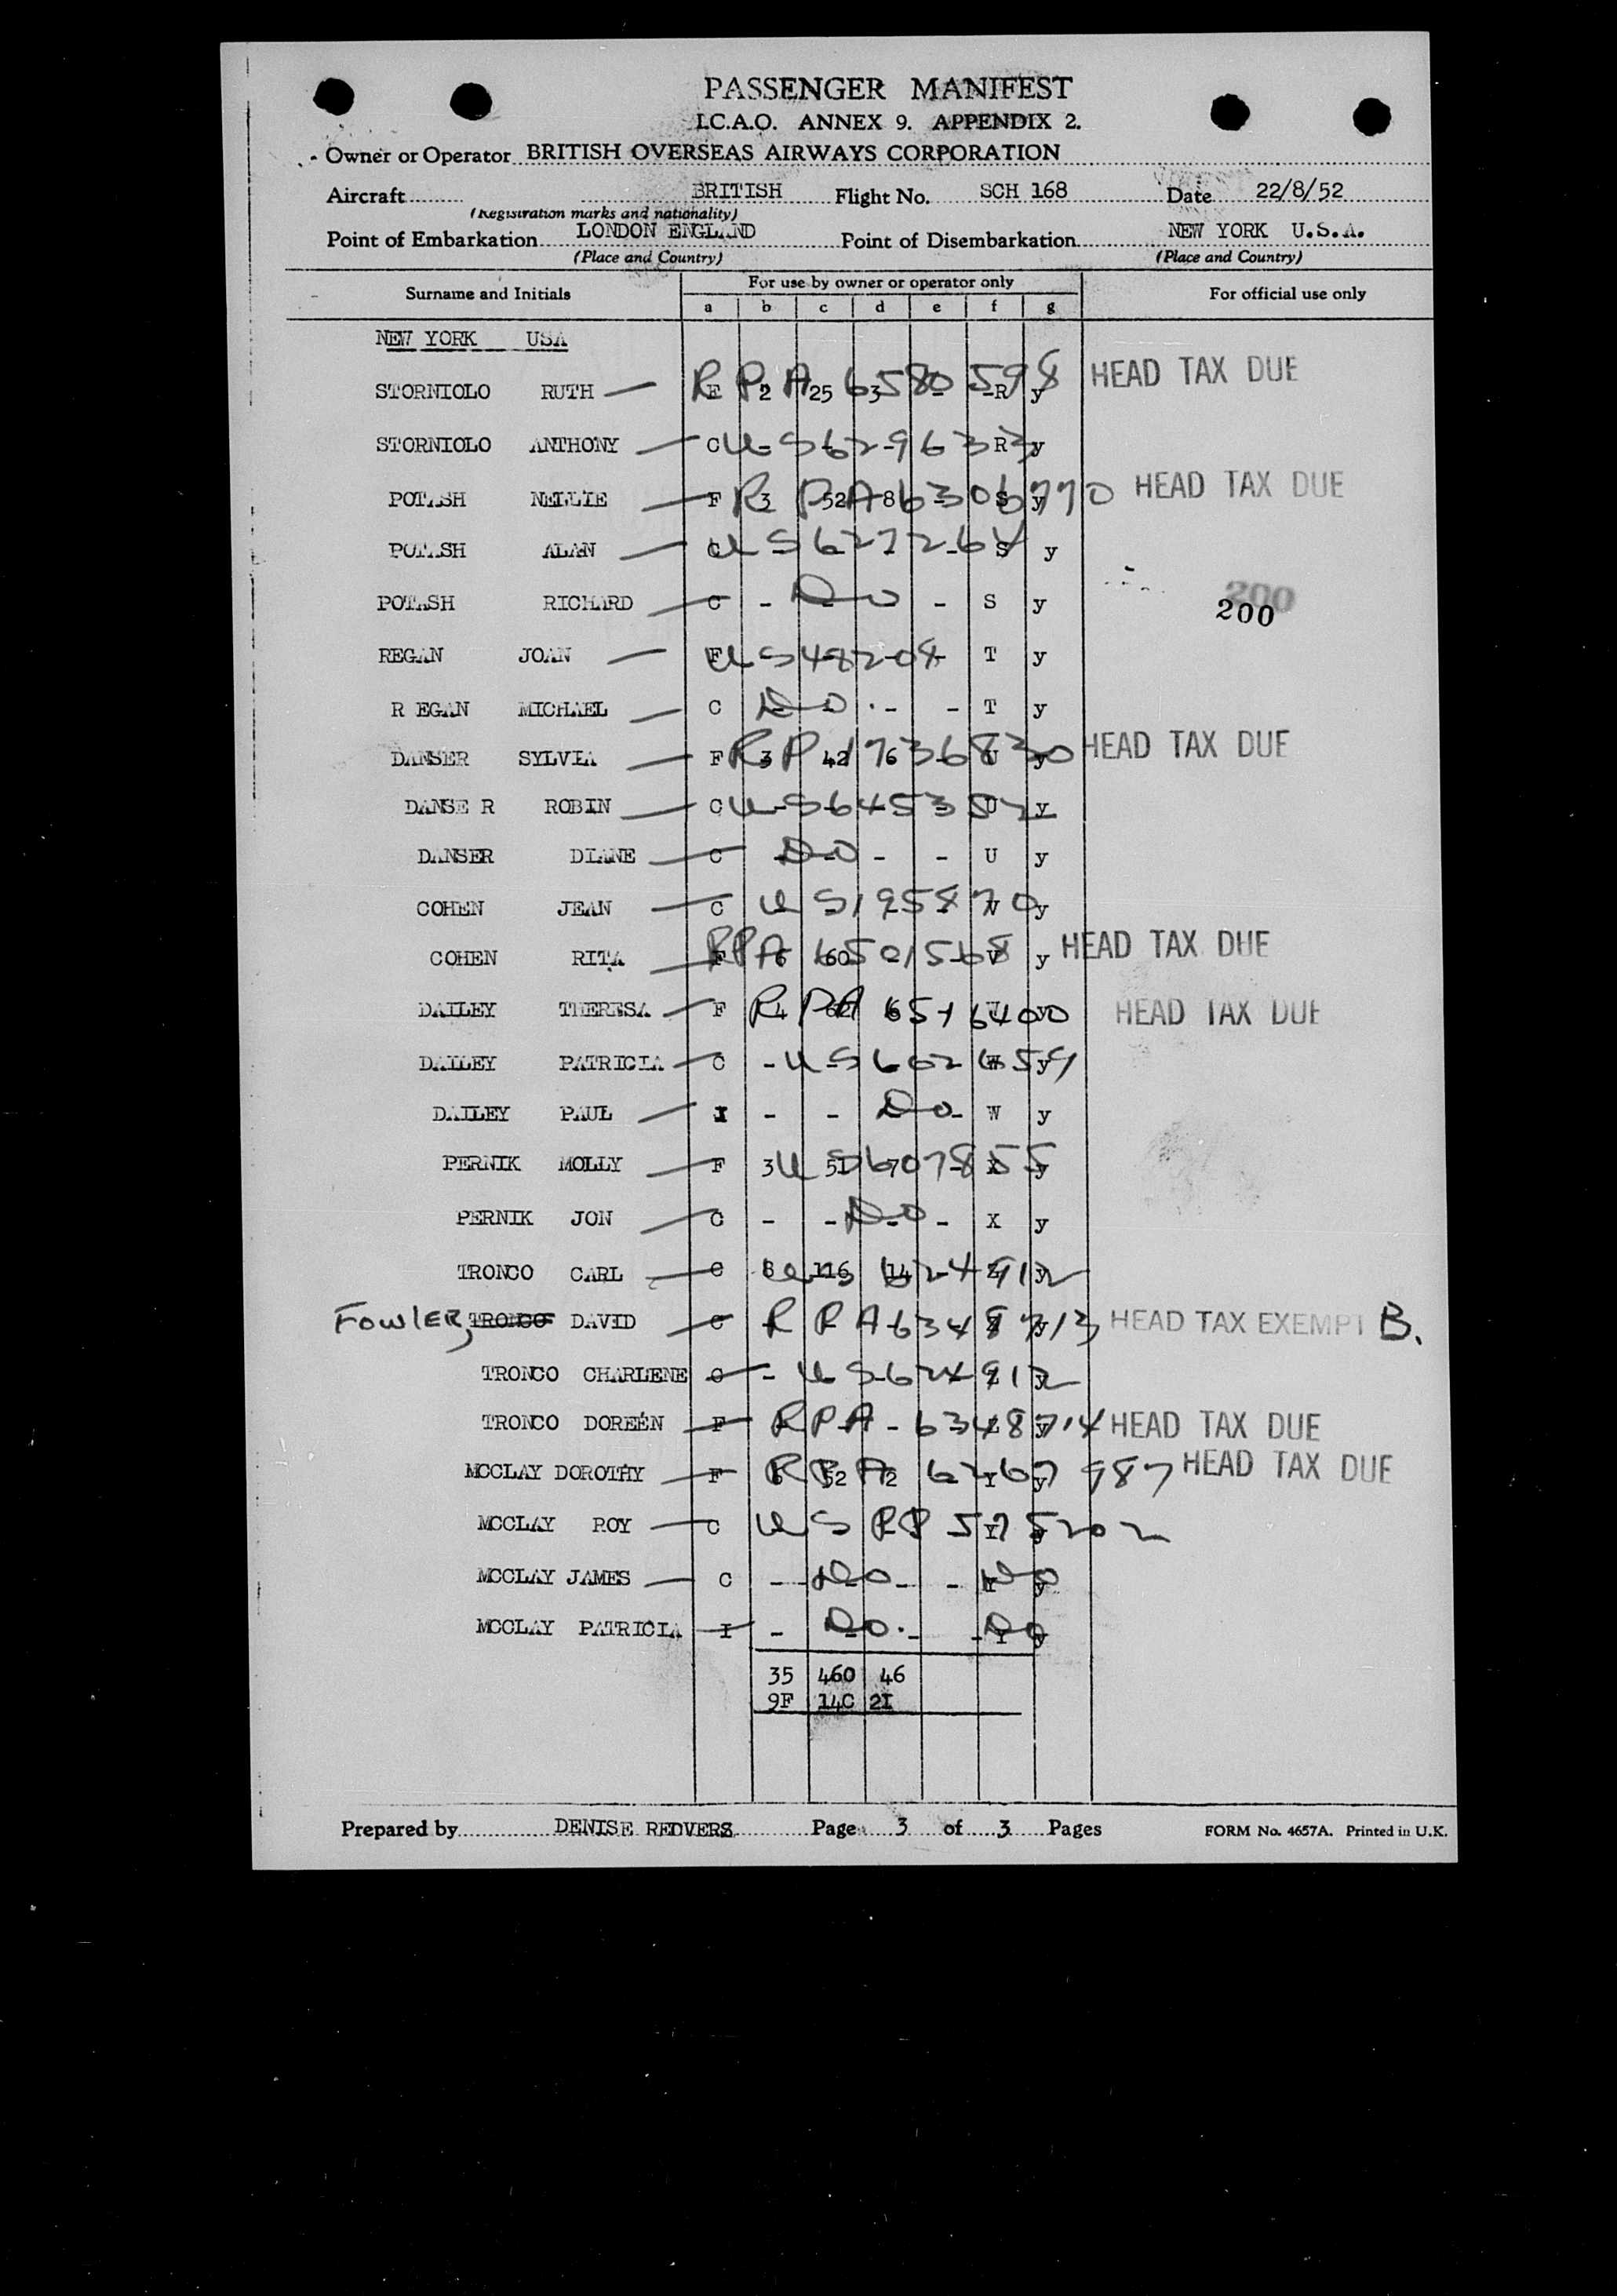 PASSENGER MANIFEST
I.C.A.O. ANNEX 9. APPENDIX 2.
Owner or Operator BRITISH OVERSEAS AIRWAYS CORPORATION
Aircraft BRITISH Flight No. SCH 168 Date 22/8/52
(Registration marks and nationality)
Point of Embarkation LONDON ENGLAND Point of Disembarkation NEW YORK U.S.A.
(Place and Country) (Place and Country)
Surname and Initials For use by owner or operator only For official use only
a b c d e f g
NEW YORK USA
STORNIOLO RUTH — F 2 25 3 - -R y RPA 6580598 HEAD TAX DUE
STORNIOLO ANTHONY — C US 629633 R y
POTASH NELLIE — F 3 52 8 - S y RPA 6306770 HEAD TAX DUE
POTASH ALAN — C US 627264 S y
POTASH RICHARD — C - Do - S y
200
REGAN JOAN — F US 48204 T y
R EGAN MICHAEL — C Do - - T y
DANSER SYLVIA — F 3 42 6 - U y RP 1736830 HEAD TAX DUE
DANSE R ROBIN — C US 645352 U y
DANSER DIANE — C Do - - U y
COHEN JEAN — C US 195870 V y
COHEN RITA — F 6 60 - V y RPA 6501568 HEAD TAX DUE
DAILEY THERESA — F 4 RPA 6516400 HEAD TAX DUE
DAILEY PATRICIA — C - US 602659 W y
DAILEY PAUL — I - - Do - W y
PERNIK MOLLY — F 3 51 7 - X y US 607855
PERNIK JON — C - - Do - X y
TRONCO CARL — C 8 116 14 US 624912
Fowler, TRONCO DAVID — C RPA 6348713 HEAD TAX EXEMPT B.
TRONCO CHARLENE C - US 624912
TRONCO DOREEN — F RPA - 6348714 HEAD TAX DUE
MCCLAY DOROTHY — F 52 2 RPA 6267987 HEAD TAX DUE
MCCLAY ROY — C US PP 575202
MCCLAY JAMES — C - Do - - Y y Do
MCCLAY PATRICIA — I - Do - - Y y Do
35 460 46
9F 14C 2I
Prepared by DENISE REDVERS Page 3 of 3 Pages FORM No. 4657A. Printed in U.K.